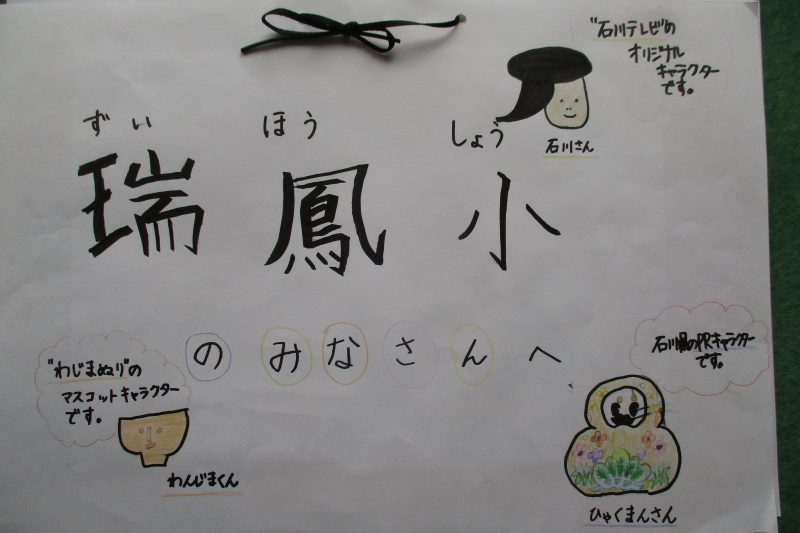 "石川テレビ"の
オリジナル
キャラクター
です。
石川さん
ずい ほう しょう
瑞鳳小
のみなさんへ
"わじまぬり"の
マスコットキャラクター
です。
わんじまくん
石川県のPRキャラクター
です。
ひゃくまんさん